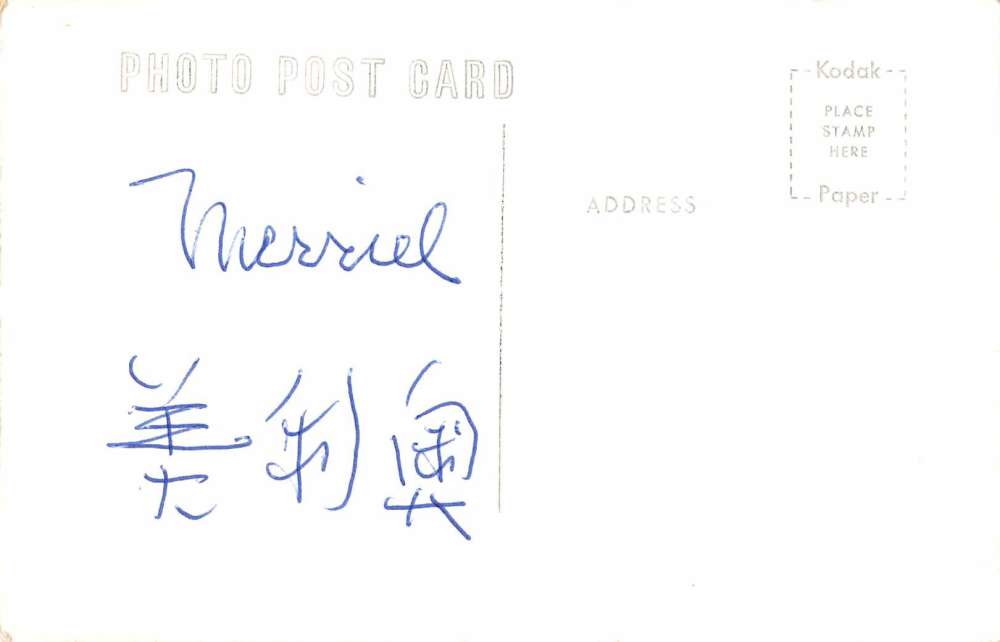 PHOTO POST CARD
Kodak
PLACE
STAMP
HERE
Paper
ADDRESS
Merriel
美利奥